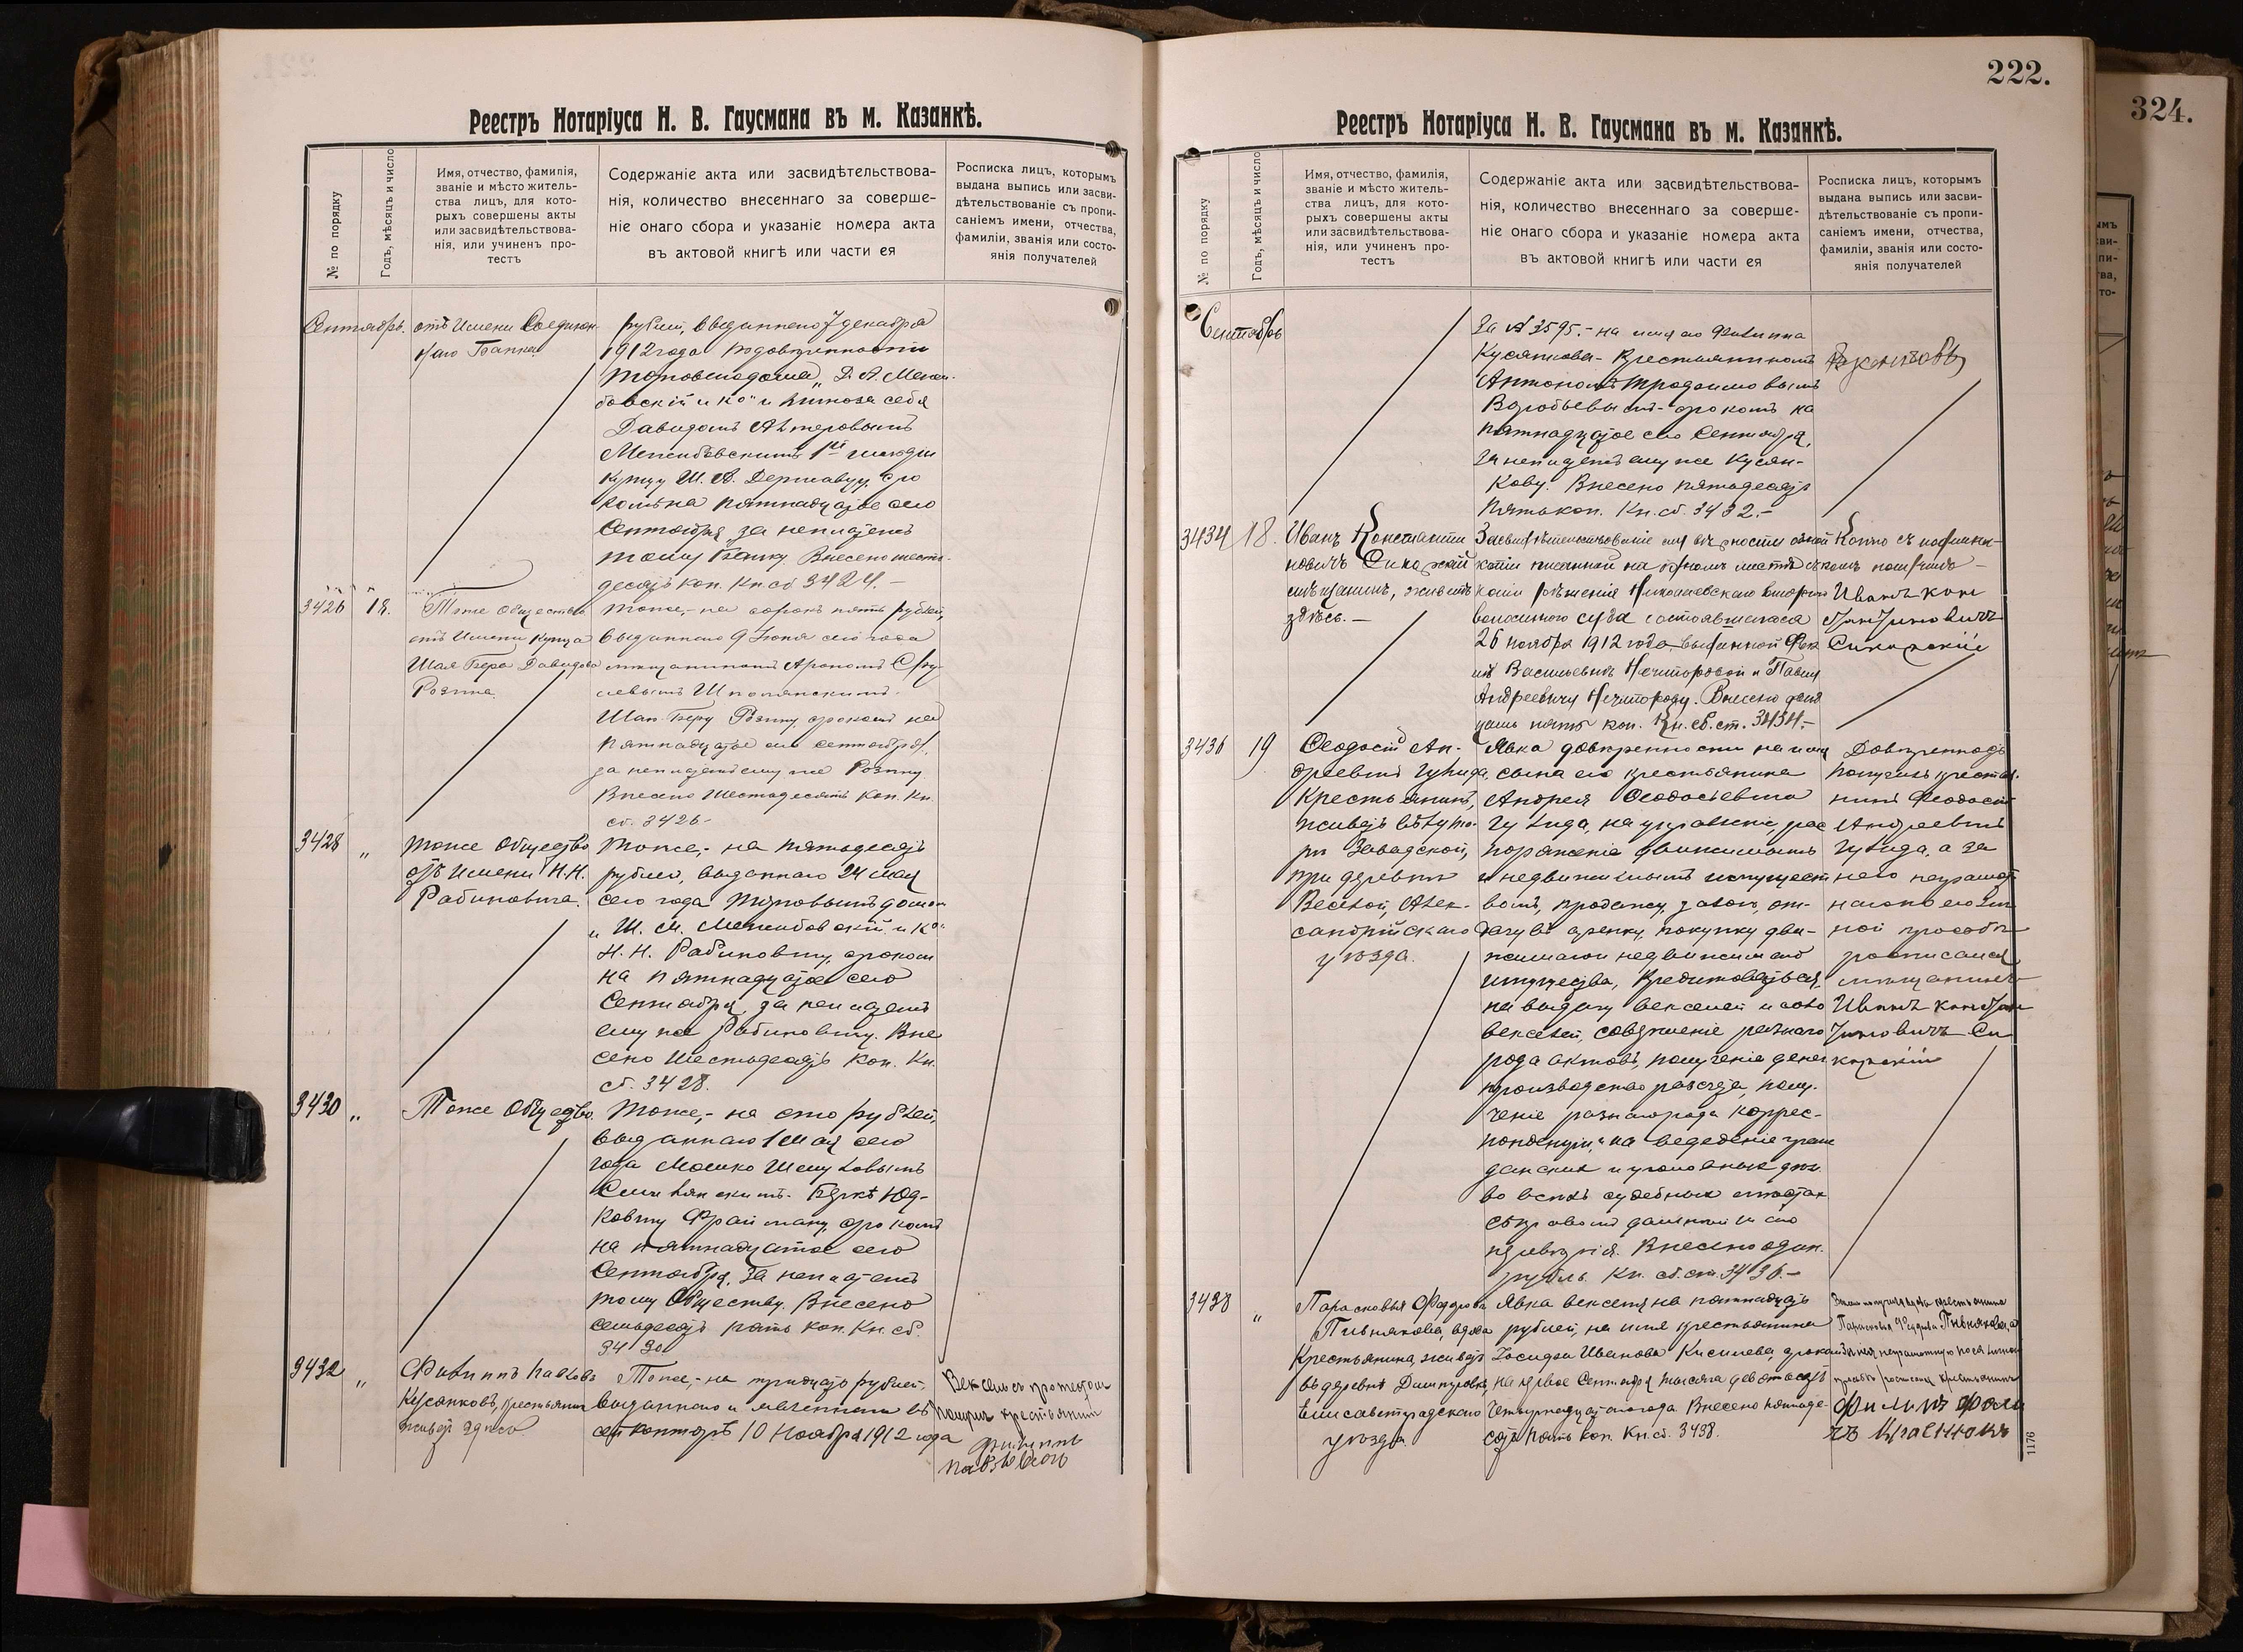 Реестръ Нотаріуса Н. В. Гаусмана въ м. Казанкѣ.
№ по порядку
Годъ, мѣсяцъ и число
Имя, отчество, фамилія,
званіе и мѣсто житель-
ства лицъ, для кото-
рыхъ совершены акты
или засвидѣтельствова-
нія, или учиненъ про-
тестъ
Содержаніе акта или засвидѣтельствова-
нія, количество внесеннаго за соверше-
ніе онаго сбора и указаніе номера акта
въ актовой книгѣ или части ея
Росписка лицъ, которымъ
выдана выпись или засви-
дѣтельствованіе съ пропи-
саніемъ имени, отчества,
фамиліи, званія или состо-
янія получателей
Сентябрь.
отъ имени Соединен-
наго Банка
рублей, выданнаго 7 декабря
1912 года по довѣренности
торговаго дома „Д. А. Межи-
бовскій и Ко" и
Давидомъ
Межибовскимъ 1й гильдіи
купцу Ш. А. Державцу, сро
комъ на пятнадцатое сего
Сентября за неплатежъ
тому Банку. Внесено шесть-
десятъ коп. Кн. сб 3424.-
3426
18.
Тоже Общество
отъ имени купца
Шая Бера Давидова
Розина
Тоже,- на сорокъ пять рублей,
выданнаго 9 Іюня сего года
мѣщаниномъ Арономъ Сру-
левымъ Шполянскимъ.
Шая-Беру Розину срокомъ на
пятнадцатое сего сентября,
за неплатежъ ему же Розину
Внесено шестьдесятъ коп. Кн.
сб. 3426-
3428
"
Тоже Общество
отъ имени Н.Н.
Рабиновича.
Тоже,- на пятьдесятъ
рублей, выданнаго 24 мая
сего года торговымъ домомъ
„Ш. М. Межибовскій и Ко"
Н. Н. Рабиновичу, срокомъ
на пятнадцатое сего
Сентября, за неплатежъ
ему же Рабиновичу. Вне
сено шестьдесятъ коп. Кн.
сб. 3428.
3430
"
Тоже Общество.
Тоже,- на сто рублей,
выданнаго 1 мая сего
года Мошко Шмулевымъ
Смилянскимъ Беркѣ Юд-
ковичу Фрайману срокомъ
на пятнадцатое сего
Сентября, за неплатежъ
тому Обществу. Внесено
семьдесятъ пять коп. Кн. сб.
3430
3432
"
Филиппъ Павловъ
Кусянковъ, крестьянинъ
живетъ здѣсь.
Тоже,- на тридцать рублей,
выданнаго и явленнаго въ
сей конторѣ 10 Ноября 1912 года
Вексель съ протестомъ
получилъ крестьянинъ
Филиппъ
Павловъ
222.
Реестръ Нотаріуса Н. В. Гаусмана въ м. Казанкѣ.
№ по порядку
Годъ, мѣсяцъ и число
Имя, отчество, фамилія,
званіе и мѣсто житель-
ства лицъ, для кото-
рыхъ совершены акты
или засвидѣтельствова-
нія, или учиненъ про-
тестъ
Содержаніе акта или засвидѣтельствова-
нія, количество внесеннаго за соверше-
ніе онаго сбора и указаніе номера акта
въ актовой книгѣ или части ея
Росписка лицъ, которымъ
выдана выпись или засви-
дѣтельствованіе съ пропи-
саніемъ имени, отчества,
фамиліи, званія или состо-
янія получателей
Сентябрь
за № 3595.- на имя Филиппа
Кусянкова- крестьяниномъ
Антономъ Трофимовымъ
Воробьевымъ- срокомъ на
пятнадцатое сего Сентября,
за неплатежъ ему же Кусян-
кову. Внесено пятьдесятъ
пять коп. Кн. сб. 3432.-
3434
18.
Иванъ Константи
новичъ Сикорскій
мѣщанинъ, живетъ
здѣсь.-
Засвидѣтельствованіе вѣрности одной
копіи писанной на одномъ листѣ съ
копіи рѣшенія Николаевскаго
волостного суда состоявшагося
26 ноября 1912 года, выданной
Васильевнѣ Нечипоровой и Павлу
Андреевичу Нечипорову. Внесено двад
цать пять коп. Кн. сб. ст. 3434.-
Копію съ подлин-
никомъ получилъ-
Иванъ Кон
стантиновичъ
Сикорскій
3436
19
Ѳеодосій Ан-
дреевичъ Гулида,
крестьянинъ,
живетъ
Завадской,
при деревнѣ
Веселой, Алек-
сандрійскаго
уѣзда.
Явка довѣренности на имя
сына его крестьянина
Андрея Ѳеодосьевича
Гулида, на управленіе, рас
поряженіе движимымъ
и недвижимымъ имущест
вомъ, продажу, залогъ, от-
дачу въ аренду, покупку дви-
жимаго и недвижимаго
имущества, кредитоваться,
на выдачу векселей и
векселей, совершеніе разнаго
рода актовъ, полученіе денегъ
производство разсчета, полу-
ченіе разнаго рода коррес-
понденціи, и на веденіе граж
данскихъ и уголовныхъ дѣлъ
во всѣхъ судебныхъ мѣстахъ
съ правомъ дальнѣйшаго
передовѣрія. Внесено одинъ
рубль. Кн. сб. ст. 3436.-
Довѣренность
получилъ крестья-
нинъ Ѳеодосій
Андреевичъ
Гулида, а за
него неграмот
наго по его лич
ной просьбѣ
росписался
мѣщанинъ
Иванъ Констан
тиновичъ Си
корскій
3438
"
Парасковья Федорова
Пивнякова, вдова
крестьянина, живетъ
въ деревнѣ Дмитровкѣ,
Елисаветградскаго
уѣзда.
Явка векселя на пятнадцать
рублей, на имя крестьянина
Іосифа Иванова Киселева, срокомъ
на первое Сентября тысяча девятьсотъ
четырнадцатаго года. Внесено пятьде-
сятъ пять коп. Кн. сб. 3438.
получила вдова крестьянина
Парасковья Федорова Пивнякова, а
за нея неграмотную по ея личной
просьбѣ росписался крестьянинъ
Филипъ
1176
324.